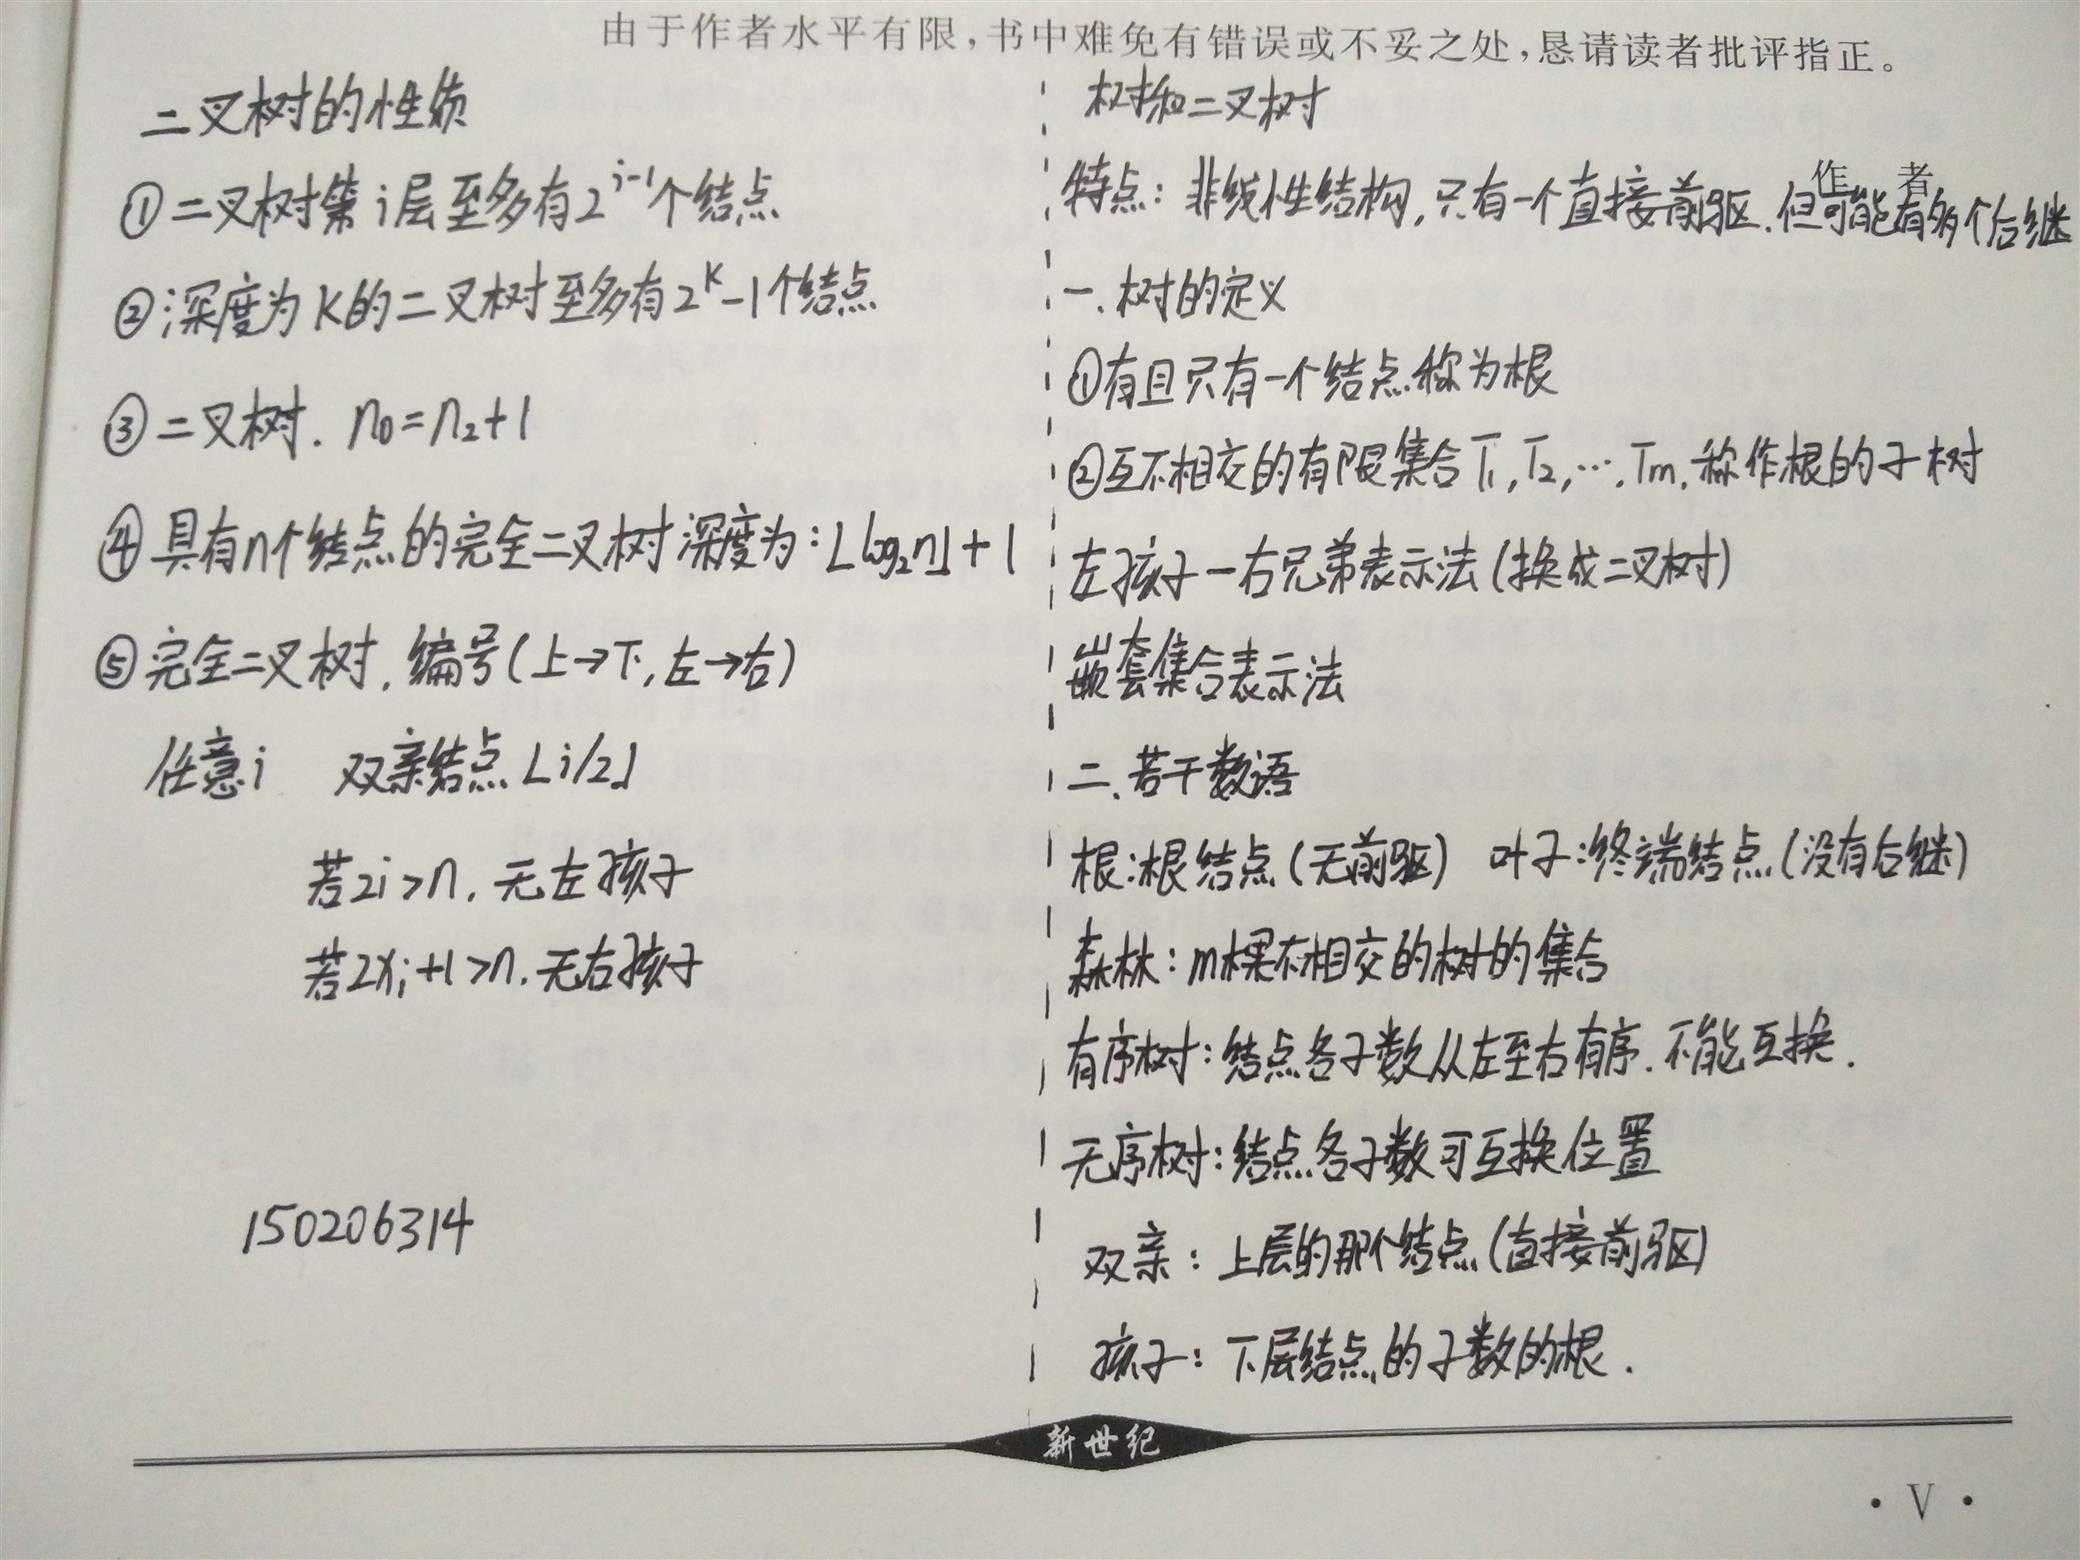 由于作者水平有限，书中难免有错误或不妥之处，恳请读者批评指正。
作 者
二叉树的性质
①二叉树第i层至多有2^{i-1}个结点
②深度为K的二叉树至多有2^K-1个结点
③二叉树. n₀=n₂+1
④具有n个结点的完全二叉树深度为:⌊log₂n⌋+1
⑤完全二叉树,编号(上→下,左→右)
任意i 双亲结点⌊i/2⌋
若2i>n,无左孩子
若2×i+1>n,无右孩子
150206314
树和二叉树
特点:非线性结构,只有一个直接前驱.但可能有多个后继
一.树的定义
①有且只有一个结点.称为根
②互不相交的有限集合T₁,T₂,…,Tm,称作根的子树
左孩子-右兄弟表示法(换成二叉树)
嵌套集合表示法
二.若干数语
根:根结点(无前驱) 叶子:终端结点(没有后继)
森林:m棵不相交的树的集合
有序树:结点各子数从左至右有序.不能互换.
无序树:结点各子数可互换位置
双亲:上层的那个结点(直接前驱)
孩子:下层结点的子数的根.
新世纪
·V·